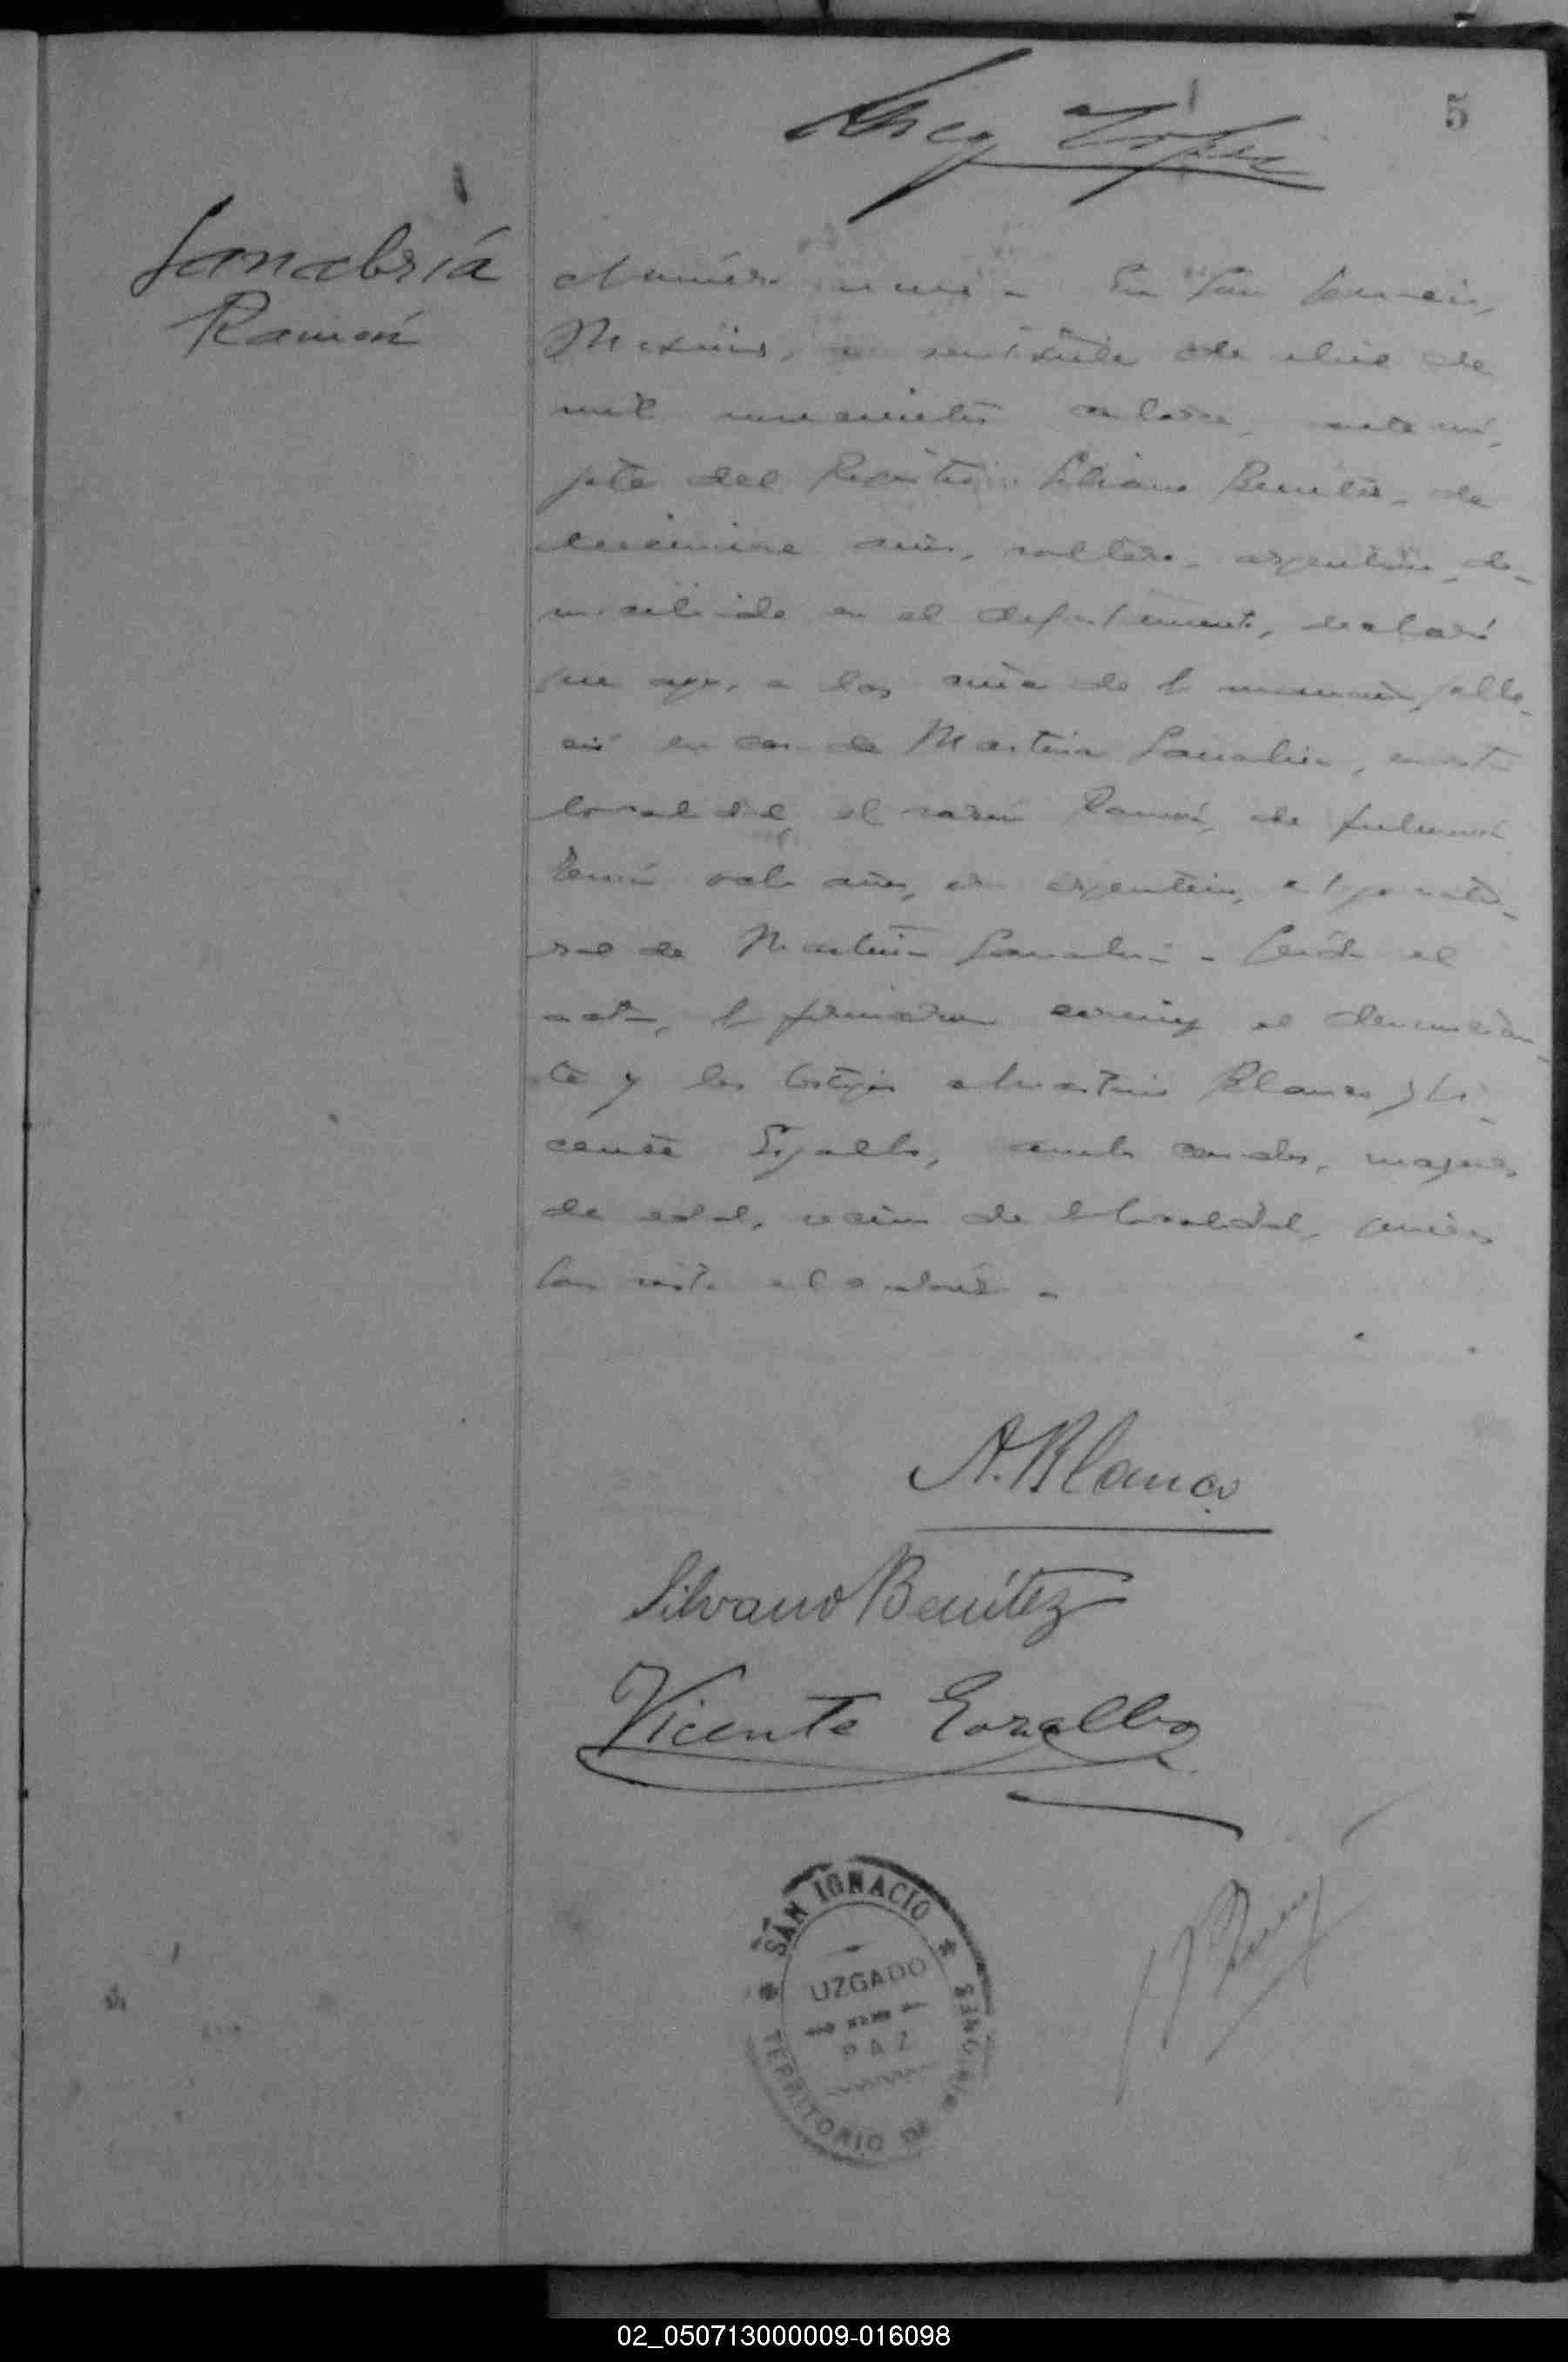 5
Sanabriá
Ramón
Número nueve - En San Ignacio,
Misiones, a veintisiete de abril de
mil novecientos catorce, ante mí,
jefe del Registro, Silvano Benítez, de
años, soltero, argentino, do-
miciliado en el departamento, declaró
que ayer, a las de la mañana, falle-
ció en casa de Martina Sanabria, en esta
localidad el varón Ramón, de pulmonía
tenía años, era argentino, hijo natu-
ral de Martina Sanabria - Leída el
acta, la firmaron conmigo el denuncian-
te y los testigos Blanco y Vi-
cente ambos casados, mayores
de edad, vecinos de la localidad, quienes
han visto el cadáver -
A. Blanco
Silvano Benítez
Vicente
SAN IGNACIO
UZGADO
PAZ
TERRITORIO DE MISIONES
02_050713000009-016098